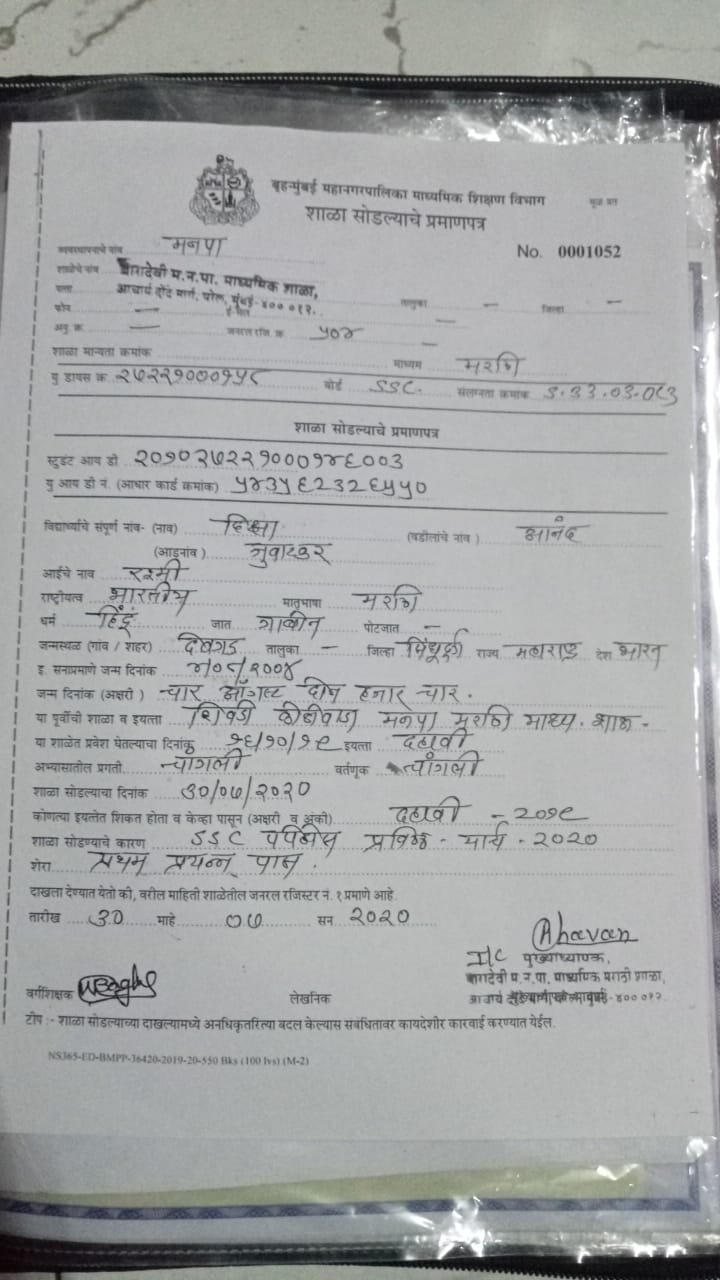 बृहन्मुंबई महानगरपालिका माध्यमिक शिक्षण विभाग
मूळ प्रत
शाळा सोडल्याचे प्रमाणपत्र
व्यवस्थापनाचे नांव मनपा
No. 0001052
शाळेचे नांव बारादेवी म.न.पा. माध्यमिक शाळा,
पत्ता आचार्य दोंदे मार्ग, परेल, मुंबई-४०० ०१२. तालुका – जिल्हा –
फोन – ई-मेल –
अनु क्र. – जनरल रजि. क्र ५०४
शाळा मान्यता क्रमांक माध्यम मराठी
यु डायस क्र. २७२२१०००१५८ बोर्ड SSC. संलग्नता क्रमांक S.33.03.
शाळा सोडल्याचे प्रमाणपत्र
स्टुडंट आय डी २०१०२७२२१०००१४६००३
यु आय डी नं. (आधार कार्ड क्रमांक) ५४३५६२३२६५५०
विद्यार्थ्याचे संपूर्ण नांव- (नाव) दिक्षा (वडीलांचे नांव ) आनंद
(आडनांव ) जुवाटकर
आईचे नाव रश्मी
राष्ट्रीयत्व भारतीय मातृभाषा मराठी
धर्म हिंदू जात गाबीत पोटजात –
जन्मस्थळ (गांव / शहर) देवगड तालुका – जिल्हा सिंधुदुर्ग राज्य महाराष्ट्र देश भारत
इ. सनाप्रमाणे जन्म दिनांक ४/०८/२००४
जन्म दिनांक (अक्षरी ) चार ऑगस्ट दोन हजार चार.
या पूर्वीची शाळा व इयत्ता शिवडी कोळीवाडा मनपा मराठी माध्य. शाळा -
या शाळेत प्रवेश घेतल्याचा दिनांक १६/१०/१९ इयत्ता दहावी
अभ्यासातील प्रगती चांगली वर्तणूक चांगली
शाळा सोडल्याचा दिनांक ३०/०७/२०२०
कोणत्या इयत्तेत शिकत होता व केव्हा पासून (अक्षरी व अंकी) दहावी - २०१९
शाळा सोडण्याचे कारण SSC परीक्षेस प्रविष्ठ - मार्च - २०२०
शेरा प्रथम प्रयत्न पास.
दाखला देण्यात येतो की, वरील माहिती शाळेतील जनरल रजिस्टर नं. १ प्रमाणे आहे.
तारीख ३० माहे ०७ सन २०२०
I/C मुख्याध्यापक,
बारादेवी म.न.पा. माध्यमिक मराठी शाळा,
वर्गशिक्षक लेखनिक आचार्य दोंदे मार्ग, परेल, मुंबई-४०० ०१२.
टीप :- शाळा सोडल्याच्या दाखल्यामध्ये अनधिकृतरित्या बदल केल्यास संबधितावर कायदेशीर कारवाई करण्यात येईल.
NS365-ED-BMPP-36420-2019-20-550 Bks (100 lvs) (M-2)